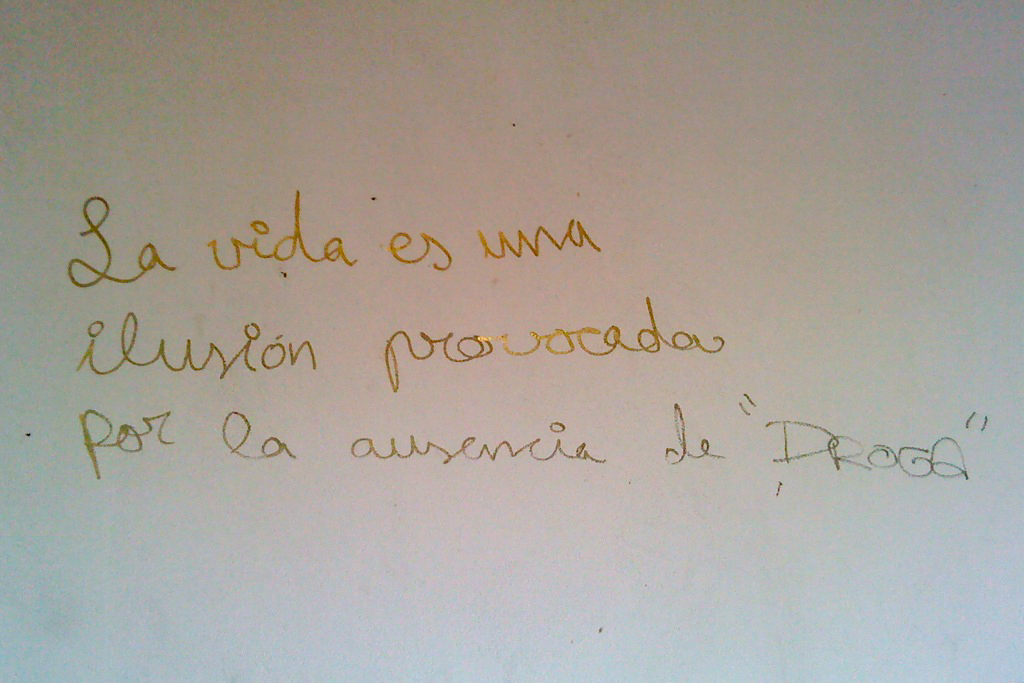 La vida es una
ilusión provocada
por la ausencia de "DROGA"